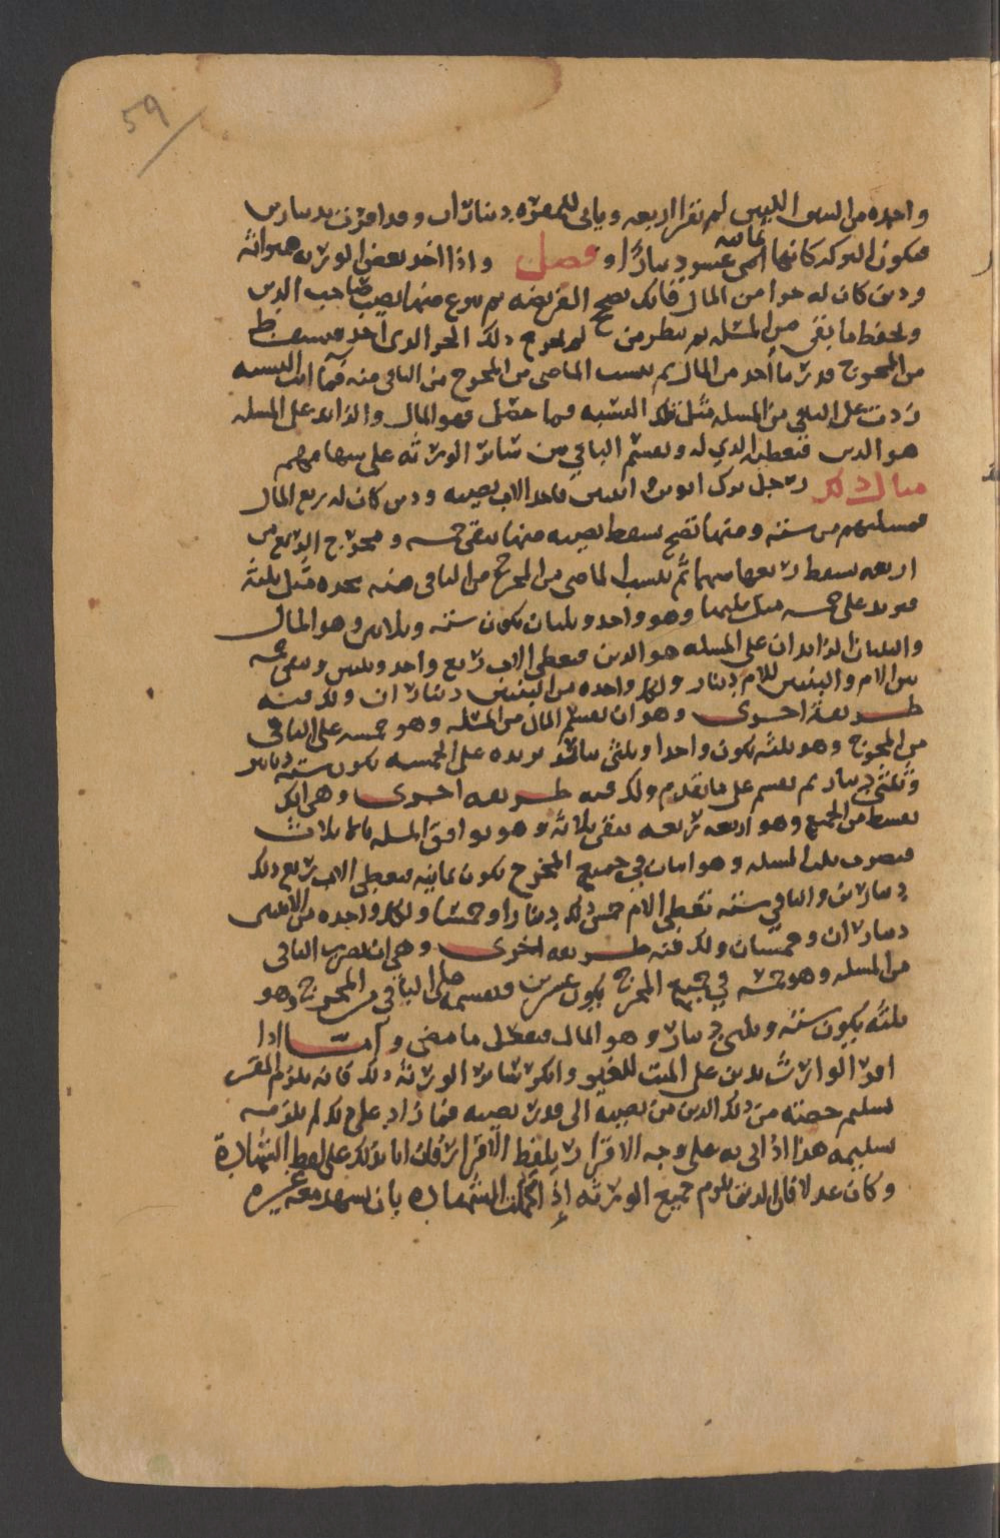 59
واحده من البنتين اللتين لم تقرا اربعه وياتي للمقره ديناران وقد اقرت بدينارين
فيكون التركه كانها ثمانيه عشر دينارا و فصل واذا اخذ بعض الورثه بميراثه
ودين كان له جزا من المال فانك تصحح الفريضه ثم تنزع منها نصيب صاحب الدين
وتحفظ ما بقي من المسله ثم تنظر من كم يخرج ذلك الجزو الذي اخذ فتسقط
من المخرج قدر ما اخذ من المال ثم تنسب الماضي من المخرج من الباقي منه فما اتت النسبه
زدت على الباقي من المسله مثل تلك النسبه فما حصل فهو المال والزايد على المسله
هو الدين فتعطيه الذي له وتقسم الباقي بين سائر الورثه على سهامهم
مثال ذلك رجل ترك ابويه وابنتين فاخذ الاب بنصيبه ودين كان له ربع المال
فمسلتهم من سته ومنها تصح تسقط نصيبه منها تبقى خمسه ومخرج الربع من
اربعه تسقط ربعها منها ثم تنسب الماضي من المخرج من الباقي منه تجده مثل ثلثه
فتزيد على خمسه مثل ثلثها وهو واحد وثلثان تكون سته وثلاثين وهو المال
والثلثان الزايدان على المسله هو الدين فتعطي الاب ربع واحد وثلثين وتبقى خمسه
بين الام والبنتين للام دينار ولكل واحده من البنتين ديناران ولك فيه
طريقة اخرى وهو ان تقسم المال من المسله وهو خمسه على الباقي
من المخرج وهو ثلثه يكون واحدا وثلثي دينار تزيده على الخمسه يكون سته دنانير
وثلثي دينار ثم تقسم على ما تقدم ولك فيه طريقه اخرى وهي انك
تسقط من المخرج وهو اربعه ربعه تبقى ثلاثه وهو يوافق المسله بالاثلاث
فتضرب ثلث المسله وهو اثنان في جميع المخرج يكون ثمانيه فتعطي الاب ربع ذلك
دينارين والباقي سته تعطي الام خمس ذلك دينارا وخمسا ولكل واحده من الابنتين
ديناران وخمسان ولك فيه طريقه اخرى وهي ان تضرب الباقي
من المسله وهو خمسه في جميع المخرج يكون عشرين وتقسمه على الباقي من المخرج وهو
ثلثه يكون سته وثلثي دينار وهو المال فتفعل ما مضى واما اذا
اقر الوارث بدين على الميت للغير وانكر سائر الورثه ذلك فانه يلزم المقر
تسليم حصته من ذلك الدين من نصيبه الى قدر نصيبه فما زاد على ذلك لم يلزمه
تسليمه هذا اذا اتى به على وجه الاقرار بلفظ الاقرار فان اتا بذلك على لفظ الشهادة
وكان عدلا فان الدين يلزم جميع الورثه اذا اكملت الشهاده بان يشهد معه غيره